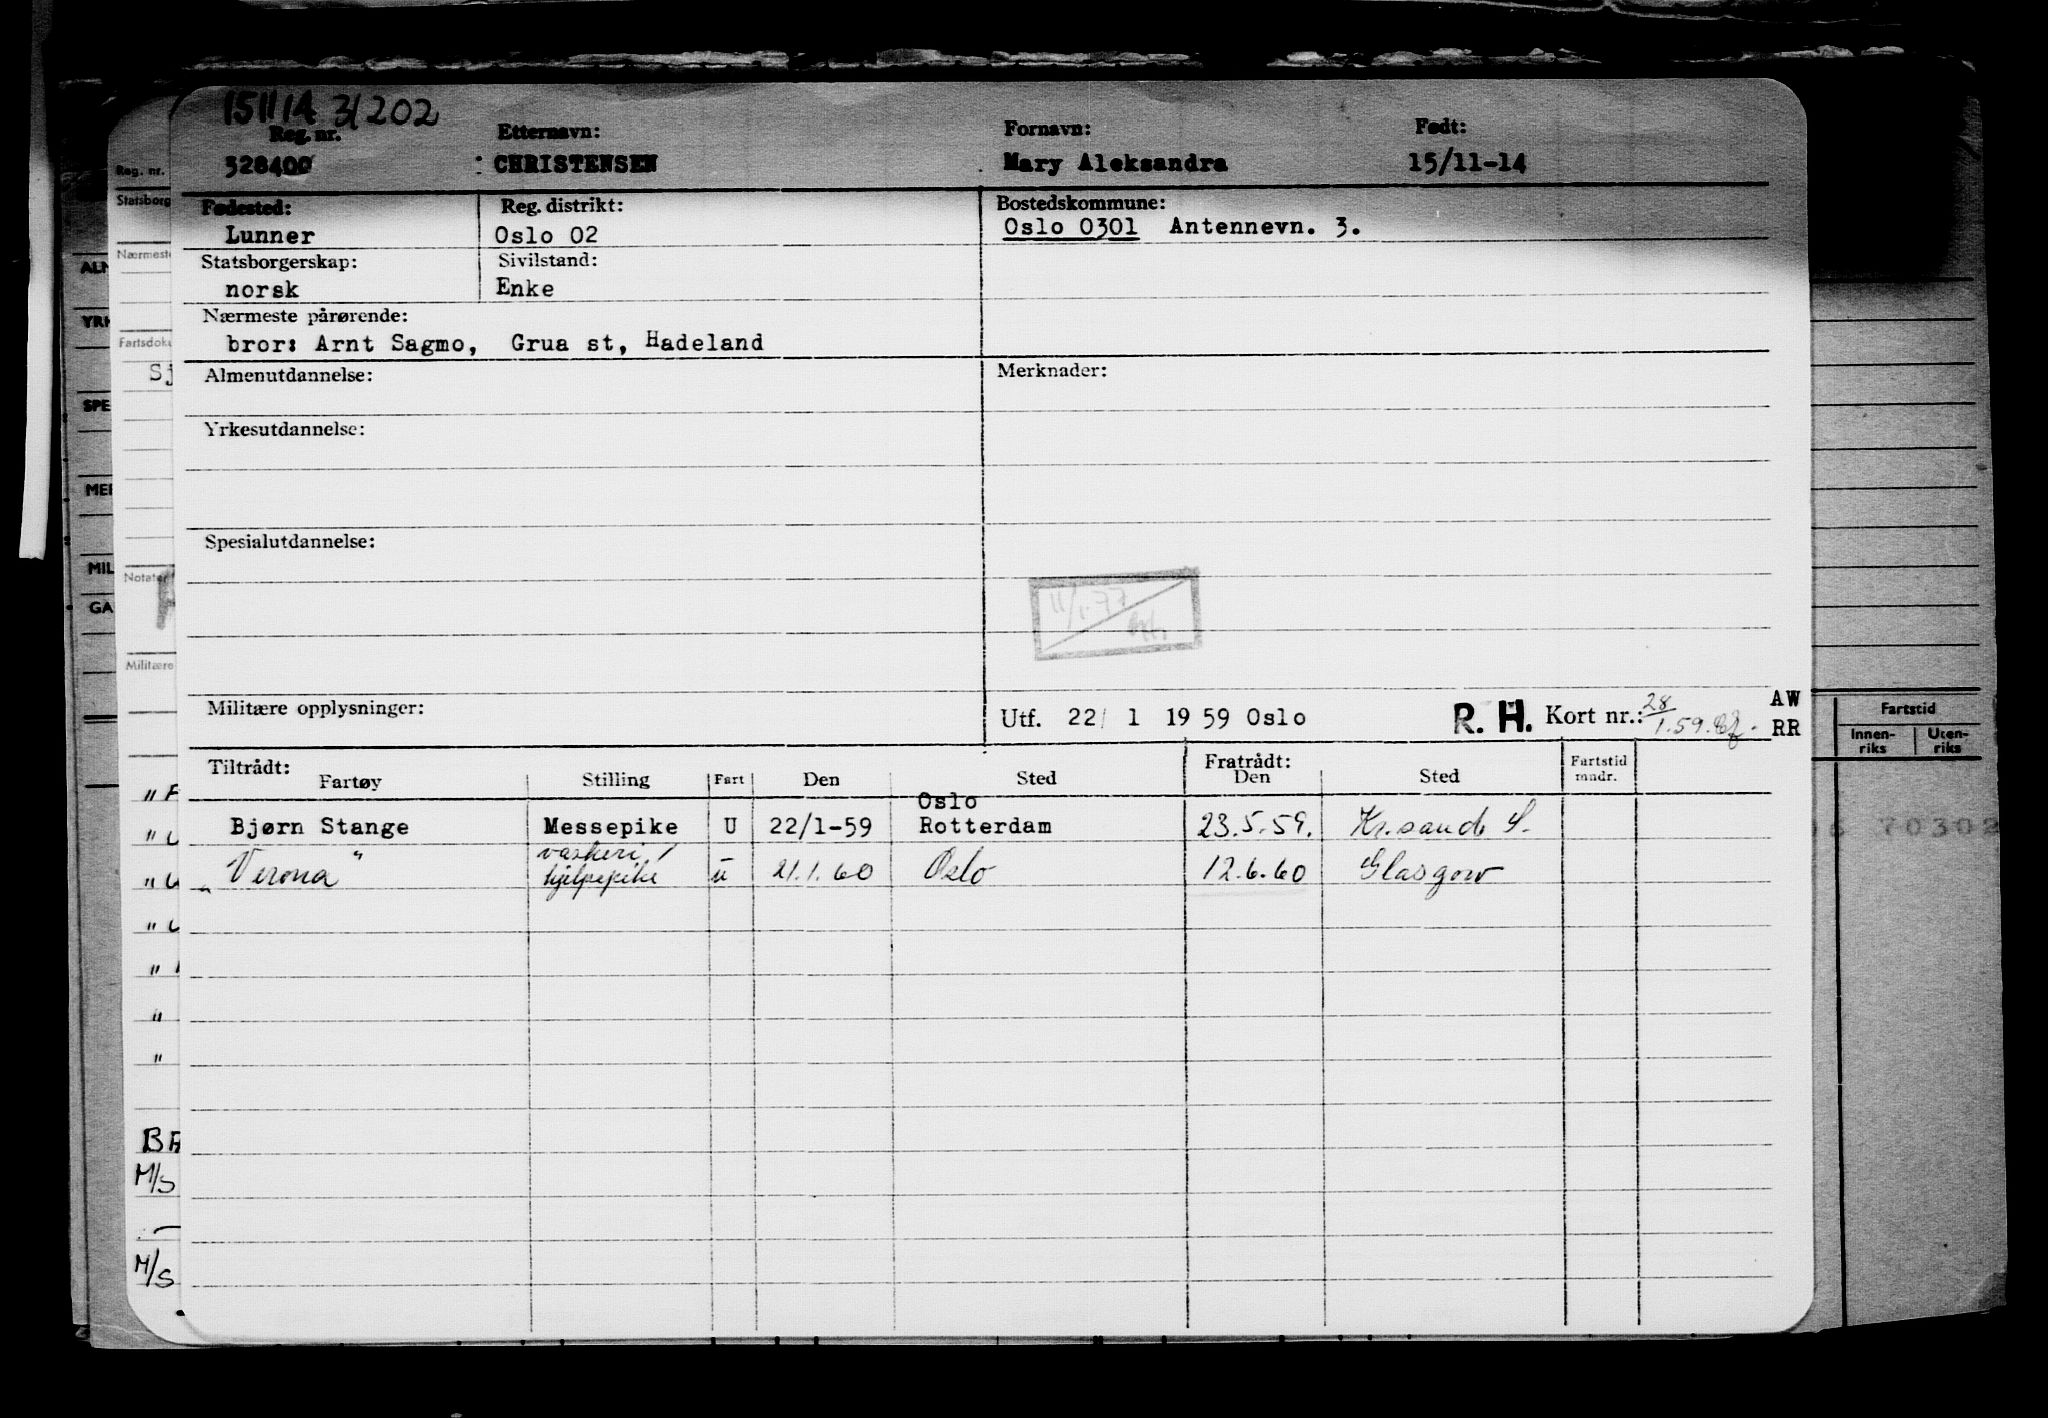 151114 31202
Reg. nr. Etternavn: Fornavn: Født:
328400 : CHRISTENSEN Mary Aleksandra 15/11-14
Fødested: Reg. distrikt: Bostedskommune:
Lunner Oslo 02 Oslo 0301 Antennevn. 3.
Statsborgerskap: Sivilstand:
norsk Enke
Nærmeste pårørende:
bror: Arnt Sagmo, Grua st, Hadeland
Almenutdannelse: Merknader:
Yrkesutdannelse:
Spesialutdannelse:
11/1.77
Militære opplysninger: Utf. 22/ 1 19 59 Oslo R. H. Kort nr.: 28/1.59. AW
RR
Tiltrådt: Fratrådt: Fartstid
Fartøy Stilling Fart Den Sted Den Sted mndr.
Oslo
Bjørn Stange Messepike U 22/1-59 Rotterdam 23.5.59. Kr.sand S.
vaskeri/
" Verona " hjelpepike u 21.1.60 Oslo 12.6.60 Glasgow
Reg. nr.
Statsborg
Nærmeste
Fartsdoku
Sj
Notater
Militære
ALM
YRK
SPE
MER
MIL
GA
" F
" U
" U
" U
"
"
"
BA
M/S
M/S
Fartstid
Innen-riks Uten-riks
70302